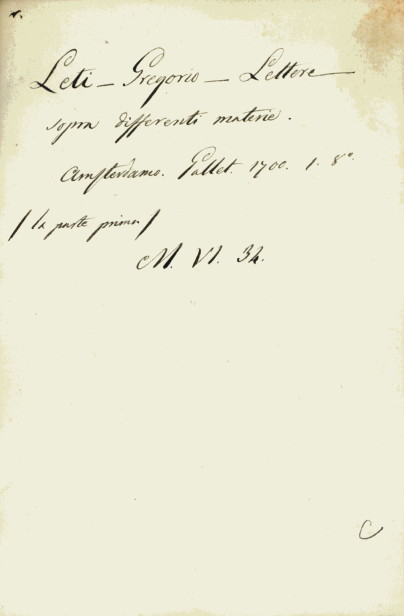 Leti – Gregorio – Lettere
sopra differenti materie.
Amsterdamo. Gallet. 1700. 1. 8º.
/ la parte prima /
M. VI. 34.
C